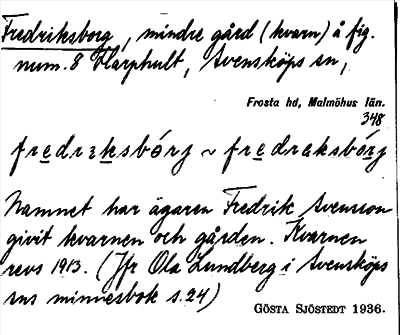 Fredriksborg, mindre gård (kvarn) å fig.
num. 8 Harphult, Svensköps sn,
Frosta hd, Malmöhus län.
348
fredrıksbórj ~ fredraksbórj
Namnet har ägaren Fredrik Svensson
givit kvarnen och gården. Kvarnen
revs 1913. (Jfr Ola Lundberg i Svensköps
sns minnesbok s. 24)
GÖSTA SJÖSTEDT 1936.